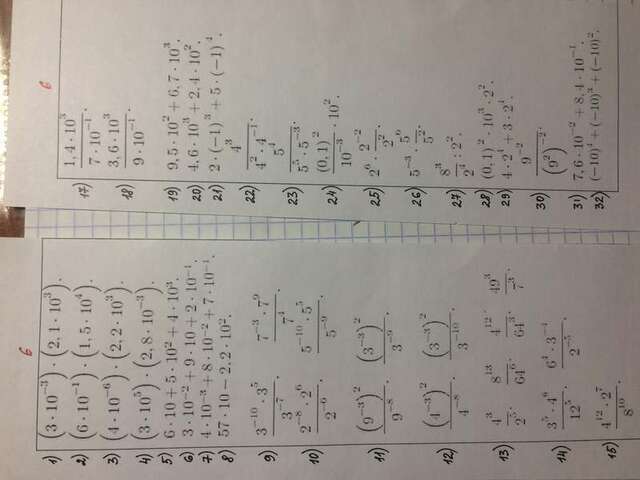 6
1) (3·10⁻³)·(2,1·10³).
2) (6·10⁻¹)·(1,5·10⁴).
3) (4·10⁻⁶)·(2,2·10³)
4) (3·10⁵)·(2,8·10⁻³).
5) 6·10+5·10²+4·10³.
6) 3·10⁻²+9·10+2·10⁻¹.
7) 4·10⁻³+8·10⁻²+7·10⁻¹.
8) 57·10−2,2·10².
9) 3⁻¹⁰·3⁵/3⁻⁷ 7⁻³·7⁹/7⁴
10) 2⁻⁸·2⁶/2⁻⁶ 5⁻¹⁰·5⁵/5⁻⁹
11) (9⁻³)²/9⁻⁸ (3⁻³)²/3⁻⁹
12) (4⁻³)²/4⁻⁸ (3⁻³)²/3⁻¹⁰
13) 4³/2⁵. 8¹³/64⁶. 4¹²/64³. 49³/7³.
14) 3⁵·4⁶/12⁵. 6⁴·3⁻⁴/2⁻⁵
15) 4¹²·2⁷/8¹⁰
6
17) 1,4·10³/7·10⁻¹.
18) 3,6·10³/9·10⁻¹.
19) 9,5·10²+6,7·10³.
20) 4,6·10³+2,4·10².
21) 2·(−1)³+5·(−1)⁴.
22) 4³/4²·4⁻¹.
23) 5⁴/5⁵·5⁻³.
24) (0,1)²/10⁻³·10².
25) 2⁶·2⁻²/2².
26) 5⁻³·5⁶/5².
27) 8³/2⁴:2².
28) (0,1)²·10³·2².
29) 4·2⁴+3·2⁴.
30) 9⁻²/(9²)⁻².
31) 7,6·10⁻²+8,4·10⁻¹.
32) (−10)⁴+(−10)³+(−10)².